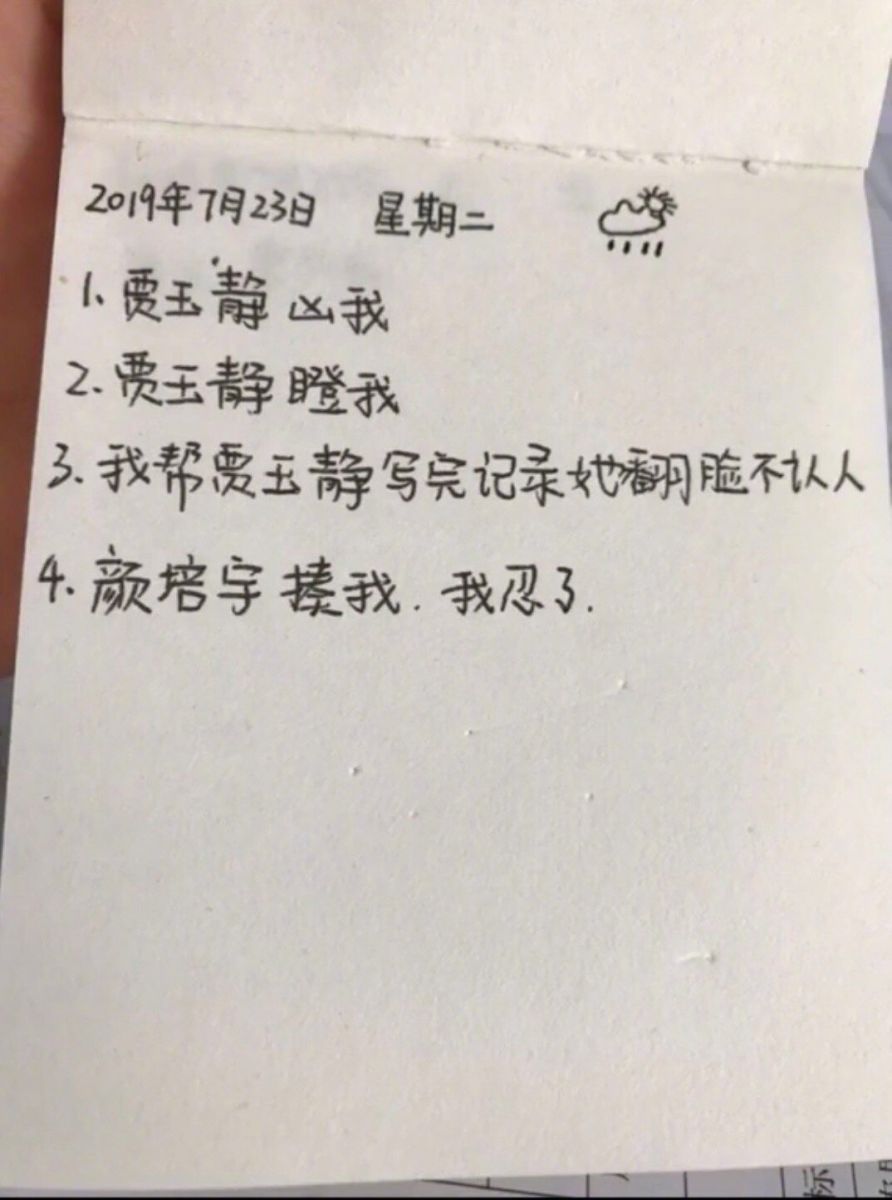 2019年7月23日 星期二
1、贾玉静 凶我
2、贾玉静 瞪我
3、我帮贾玉静写完记录她翻脸不认人
4、颜培宇 揍我．我忍了．
标